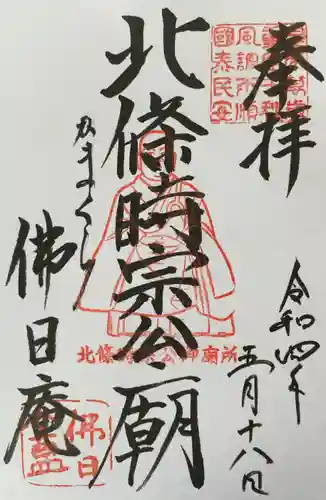 奉拝
令和四年
五月十八日
北條時宗公廟
かまくら
佛日庵
國泰民安
風調雨順
北條時宗公御廟所
佛日